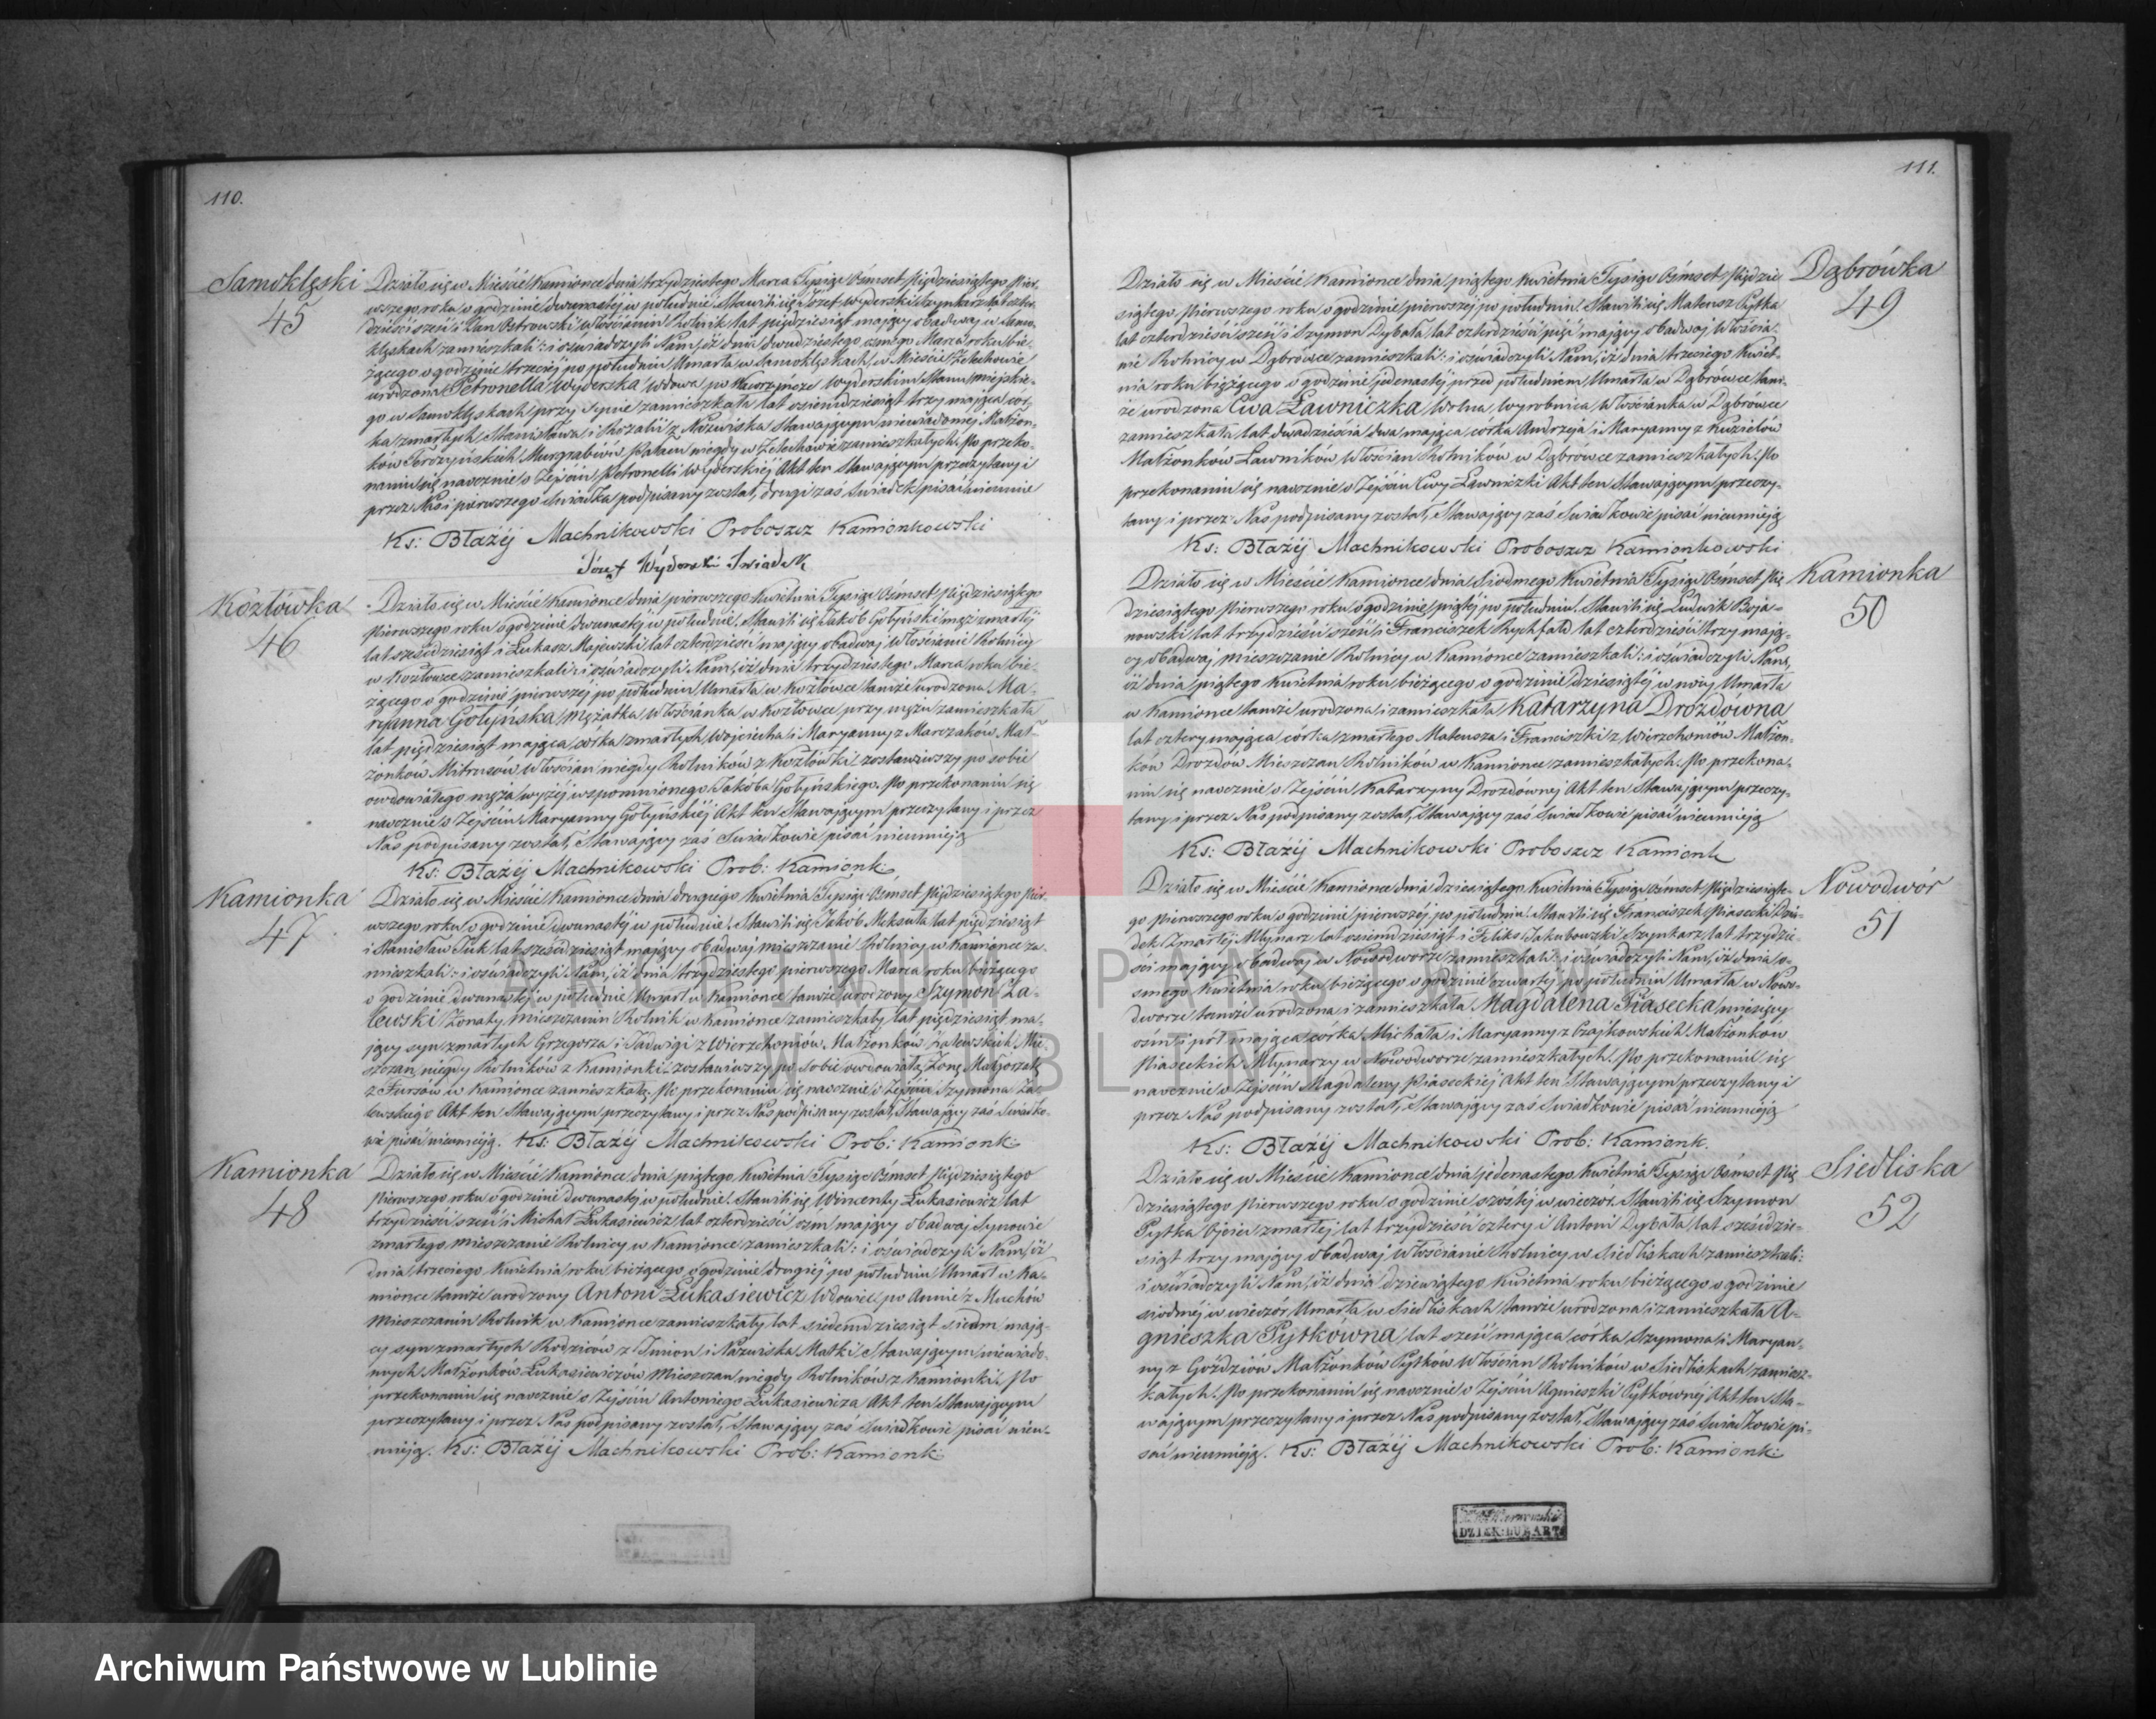 110.
Samoklęski
45
Działo się w Mieście Kamionce dnia trzydziestego Marca Tysiąc Ośmset Pięćdziesiątego Pier-
wszego roku o godzinie dwunastej w południe. Stawili się Józef Wyderski Szynkarz lat czter-
dzieści sześć i Jan Ostrowski Włościanin Rolnik lat pięćdziesiąt mający obadwaj w Samo-
klęskach zamieszkali: i oświadczyli Nam, iż dnia dwudziestego ósmego Marca roku bie-
żącego o godzinie trzeciej po południu Umarła w Samoklęskach, w Mieście Żelechowie
urodzona Petronella Wyderska Wdowa po Wawrzyńcze Wyderskim Stanu miejskie-
go w Samoklęskach przy Synie zamieszkała lat osiemdziesiąt trzy mająca cór-
ka zmarłych Stanisława i Rozalii z Nazwiska Stawającym niewiadomej Małżon-
ków niegdy w Żelechowie zamieszkałych. Po przeko-
naniu się naocznie o Zejściu Petronelli Wyderskiéj Akt ten Stawającym przeczytany i
przez Nas i pierwszego Świadka podpisany został, drugi zaś Świadek pisać nieumie
Ks: Błażéj Machnikowski Proboszcz Kamionkowski
Józef Wyderski Swiadek
Kozłówka
46
Działo się w Mieście Kamionce dnia pierwszego Kwietnia Tysiąc Ośmset Pięćdziesiątego
Pierwszego roku o godzinie dwunastéj w południe. Stawili się Jakób Gołyński mąż zmarłéj
lat sześćdziesiąt i Łukasz Majewski lat czterdzieści mający obadwaj Włościanie Rolnicy
w Kozłówce zamieszkali: i oświadczyli Nam, iż dnia trzydziestego Marca roku bie-
żącego o godzinie pierwszej po południu Umarła w Kozłówce tamże urodzona Ma-
ryanna Gołyńska Mężatka Włościanka w Kozłówce przy mężu zamieszkała
lat pięćdziesiąt mająca córka zmarłych Wojciecha i Maryanny z Marczaków Mał-
żonków Mitrusów Włościan niegdy Rolników z Kozłówki zostawiwszy po sobie
owdowiałego męża wyżéj wspomnionego Jakóba Gołyńskiego. Po przekonaniu się
naocznie o Zejściu Maryanny Gołyńskiéj Akt ten Stawającym przeczytany i przez
Nas podpisany został, Stawający zaś Świadkowie pisać nieumieją
Ks: Błażéj Machnikowski Prob: Kamionk:
Kamionka
47
Działo się w Mieście Kamionce dnia drugiego Kwietnia Tysiąc Ośmset Pięćdziesiątego Pier-
wszego roku o godzinie dwunastéj w południe. Stawili się Jakób Mekaula lat pięćdziesiąt
i Stanisław Żuk lat sześćdziesiąt mający obadwaj mieszczanie Rolnicy w Kamionce za-
mieszkali: i oświadczyli Nam, iż dnia trzydziestego pierwszego Marca roku bieżącego
o godzinie dwunastéj w południe Umarł w Kamionce tamże urodzony Szymon Za-
lewski Żonaty Mieszczanin Rolnik w Kamionce zamieszkały lat pięćdziesiąt ma-
jący syn zmarłych Grzegorza i Jadwigi z Wierzchoniów Małżonków Zalewskich Mie-
szczan, niegdy Rolników z Kamionki: zostawiwszy po sobie owdowiałą Żonę Małgorzatę
z Fursów w Kamionce zamieszkałą. Po przekonaniu się naocznie o Zejściu Szymona Za-
lewskiego Akt ten Stawającym przeczytany i przez Nas podpisany został, Stawający zaś Świadko-
wie pisać nieumieją. Ks: Błażéj Machnikowski Prob: Kamionk:
Kamionka
48
Działo się w Mieście Kamionce dnia piątego Kwietnia Tysiąc Ośmset Pięćdziesiątego
Pierwszego roku o godzinie dwunastéj w południe. Stawili się Wincenty Łukasiewicz lat
trzydzieści sześć i Michał Łukasiewicz lat czterdzieści ośm mający obadwaj Synowie
zmarłego mieszczanie Rolnicy w Kamionce zamieszkali: i oświadczyli Nam, iż
dnia trzeciego Kwietnia roku bieżącego o godzinie drugiéj po południu Umarł w Ka-
mionce tamże urodzony Antoni Łukasiewicz Wdowiec po Annie z Muchów
Mieszczanin Rolnik w Kamionce zamieszkały lat siedemdziesiąt siedm mają-
cy syn zmarłych Rodziców z Imion i Nazwiska Matki Stawającym niewiado-
mych Małżonków Łukasiewiczów Mieszczan niegdy Rolników z Kamionki. Po
przekonaniu się naocznie o Zejściu Antoniego Łukasiewicza Akt ten Stawającym
przeczytany i przez Nas podpisany został, Stawający zaś Świadkowie pisać nieu-
mieją. Ks: Błażéj Machnikowski Prob: Kamionk:
111.
Dąbrówka
49
Działo się w Mieście Kamionce dnia piątego Kwietnia Tysiąc Ośmset Pięćdzie-
siątego Pierwszego roku o godzinie pierwszéj po południu. Stawili się Mateusz Pytka
lat czterdzieści sześć i Szymon Dybała lat czterdzieści pięć mający obadwaj Włościa-
nie Rolnicy w Dąbrówce zamieszkali: i oświadczyli Nam, iż dnia trzeciego Kwiet-
nia roku bieżącego o godzinie jedenastéj przed południem Umarła w Dąbrówce tam-
że urodzona Ewa Ławniczka Wolna, Wyrobnica, Włościanka w Dąbrówce
zamieszkała lat dwadzieścia dwa mająca córka Andrzeja i Maryanny z Kuzielów
Małżonków Ławników Włościan Rolników w Dąbrówce zamieszkałych. Po
przekonaniu się naocznie o Zejściu Ewy Ławniczki Akt ten Stawającym przeczy-
tany i przez Nas podpisany został, Stawający zaś Świadkowie pisać nieumieją
Ks: Błażéj Machnikowski Proboszcz Kamionkowski
Kamionka
50
Działo się w Mieście Kamionce dnia Siódmego Kwietnia Tysiąc Ośmset Pię-
dziesiątego Pierwszego roku o godzinie piątéj po południu. Stawili się Ludwik Boja-
nowski lat trzydzieści sześć i Franciszek Rychfald lat czterdzieści trzy mają-
cy obadwaj Mieszczanie Rolnicy w Kamionce zamieszkali: i oświadczyli Nam,
iż dnia piątego Kwietnia roku bieżącego o godzinie dziesiątéj w nocy Umarła
w Kamionce tamże urodzona i zamieszkała Katarzyna Drozdówna
lat cztery mająca, córka zmarłego Mateusza i Franciszki z Wierzchoniów Małżon-
ków Drozdów Mieszczan Rolników w Kamionce zamieszkałych. Po przekona-
niu się naocznie o Zejściu Katarzyny Drozdównej Akt ten Stawającym przeczy-
tany i przez Nas podpisany został, Stawający zaś Świadkowie pisać nieumieją
Ks: Błażéj Machnikowski Proboszcz Kamionk
Nowodwór
51
Działo się w Mieście Kamionce dnia dziesiątego Kwietnia Tysiąc Ośmset Pięćdziesiąte-
go Pierwszego roku o godzinie pierwszéj po południu. Stawili się Franciszek Piasecki Dzia-
dek Zmarłéj Młynarz lat osiemdziesiąt i Feliks Jakubowski Szynkarz lat trzydzie-
ści mający obadwaj w Nowodworze zamieszkali: i oświadczyli Nam, iż dnia ó-
smego Kwietnia roku bieżącego o godzinie czwartéj po południu Umarła w Nowo-
dworze tamże urodzona i zamieszkała Magdalena Piasecka miesięcy
ośm i pół mająca córka Michała i Maryanny z Czajkowskich Małżonków
Piaseckich Młynarzy w Nowodworze zamieszkałych. Po przekonaniu się
naocznie o Zejściu Magdaleny Piaseckiéj Akt ten Stawającym przeczytany i
przez Nas podpisany został, Stawający zaś Świadkowie pisać nieumieją
Ks: Błażéj Machnikowski Prob: Kamionk.
Siedliska
52
Działo się w Mieście Kamionce dnia jedenastego Kwietnia Tysiąc Ośmset Pię-
dziesiątego Pierwszego roku o godzinie szóstéj w wieczór. Stawili się Szymon
Pytka Ojciec zmarłéj lat trzydzieści cztery i Antoni Dybała lat sześćdzie-
siąt trzy mający obadwaj Włościanie Rolnicy w Siedliskach zamieszkali:
i oświadczyli Nam, iż dnia dziewiątego Kwietnia roku bieżącego o godzinie
siódméj w wieczór Umarła w Siedliskach tamże urodzona i zamieszkała A-
gnieszka Pytkówna lat sześć mająca córka Szymona i Maryan-
ny z Goździów Małżonków Pytków Włościan Rolników w Siedliskach zamiesz-
kałych. Po przekonaniu się naocznie o Zejściu Agnieszki Pytkównej Akt ten Sta-
wającym przeczytany i przez Nas podpisany został, Stawający zaś Świadkowie pi-
sać nieumieją. Ks: Błażéj Machnikowski Prob: Kamionk:
DZIEK: LUBART
ARCHIWUM PAŃSTWOWE
W LUBLINIE
Archiwum Państwowe w Lublinie